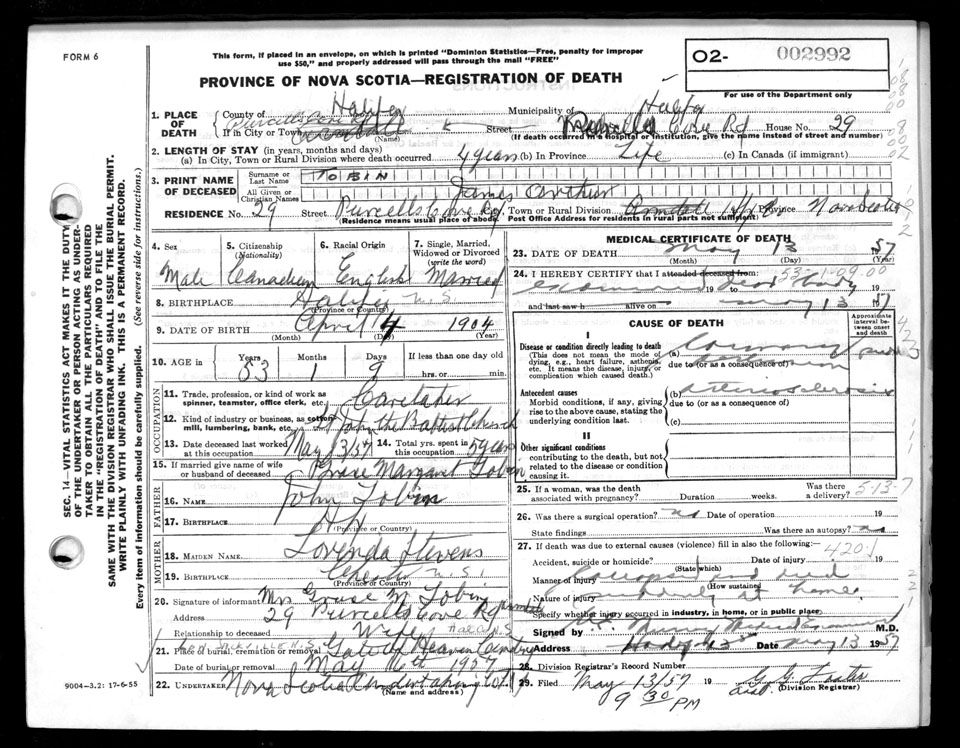 FORM 6
This form, if placed in an envelope, on which is printed "Dominion Statistics—Free, penalty for improper
use $50," and properly addressed will pass through the mail "FREE"
O2- 002992
For use of the Department only
PROVINCE OF NOVA SCOTIA—REGISTRATION OF DEATH
1. PLACE OF DEATH
County of Halifax Municipality of Halifax
If in City or Town (Name) Street Purcells Cove Rd House No. 29
(If death occurred in a hospital or institution, give the name instead of street and number)
2. LENGTH OF STAY (in years, months and days)
(a) In City, Town or Rural Division where death occurred 4 years (b) In Province Life (c) In Canada (if immigrant)
3. PRINT NAME OF DECEASED
Surname or Last Name TOBIN
All Given or Christian Names James Arthur
RESIDENCE No. 29 Street Purcells Cove Rd. Town or Rural Division Armdale Hfx Province Nova Scotia
(Residence means usual place of abode. Post Office Address for residents in rural parts not sufficient)
4. Sex Male
5. Citizenship (Nationality) Canadian
6. Racial Origin English
7. Single, Married, Widowed or Divorced (write the word) Married
8. BIRTHPLACE Halifax N.S.
(Province or Country)
9. DATE OF BIRTH April 4 1904
(Month) (Day) (Year)
10. AGE in Years 53 Months 1 Days 9 If less than one day old hrs. or min.
OCCUPATION
11. Trade, profession, or kind of work as spinner, teamster, office clerk, etc. Caretaker
12. Kind of industry or business, as cotton mill, lumbering, bank, etc. St John the Baptist Church
13. Date deceased last worked at this occupation May 13/57 14. Total yrs. spent in this occupation 5 years
15. If married give name of wife or husband of deceased Grace Margaret Tobin
FATHER
16. NAME John Tobin
17. BIRTHPLACE
(Province or Country)
MOTHER
18. MAIDEN NAME Lovenda Stevens
19. BIRTHPLACE N.S.
(Province or Country)
20. Signature of informant Mrs Grace M Tobin
Address 29 Purcells Cove Rd Armdale
Relationship to deceased Wife
21. Place of burial, cremation or removal Gate of Heaven Cemetery
Date of burial or removal May 16th 1957
22. UNDERTAKER Nova Scotia Undertaking Co Ltd
(Name and address)
MEDICAL CERTIFICATE OF DEATH
23. DATE OF DEATH May 13 1957
(Month) (Day) (Year)
24. I HEREBY CERTIFY that I attended deceased from: 53-1-09.00
examined 19 dead body
and last saw h alive on May 13 1957
CAUSE OF DEATH
Approximate interval between onset and death
I
Disease or condition directly leading to death (a) Coronary
(This does not mean the mode of dying, e.g., heart failure, asthenia, etc. It means the disease, injury, or complication which caused death.)
due to (or as a consequence of)
Antecedent causes (b) arteriosclerosis
Morbid conditions, if any, giving rise to the above cause, stating the underlying condition last.
due to (or as a consequence of)
(c)
II
Other significant conditions contributing to the death, but not related to the disease or condition causing it.
25. If a woman, was the death associated with pregnancy? Duration weeks. Was there a delivery? 5-13-7
26. Was there a surgical operation? no Date of operation 19
State findings Was there an autopsy? no
27. If death was due to external causes (violence) fill in also the following:—
Accident, suicide or homicide? (State which) Date of injury 19
420.1
Manner of injury collapsed and died
(How sustained)
Nature of injury suddenly at home
Specify whether injury occurred in industry, in home, or in public place.
Signed by Medical Examiner M.D.
Address Date May 13 1957
28. Division Registrar's Record Number
29. Filed May 13/57 19 G. G. Foster
(Division Registrar)
9 30 PM
SEC. 14—VITAL STATISTICS ACT MAKES IT THE DUTY
OF THE UNDERTAKER OR PERSON ACTING AS UNDERTAKER
TO OBTAIN ALL THE PARTICULARS REQUIRED
IN THE "REGISTRATION OF DEATH" AND TO FILE THE
SAME WITH THE DIVISION REGISTRAR WHO SHALL ISSUE THE BURIAL PERMIT.
WRITE PLAINLY WITH UNFADING INK. THIS IS A PERMANENT RECORD.
Every item of information should be carefully supplied. (See reverse side for instructions.)
9004-3.2: 17-6-55